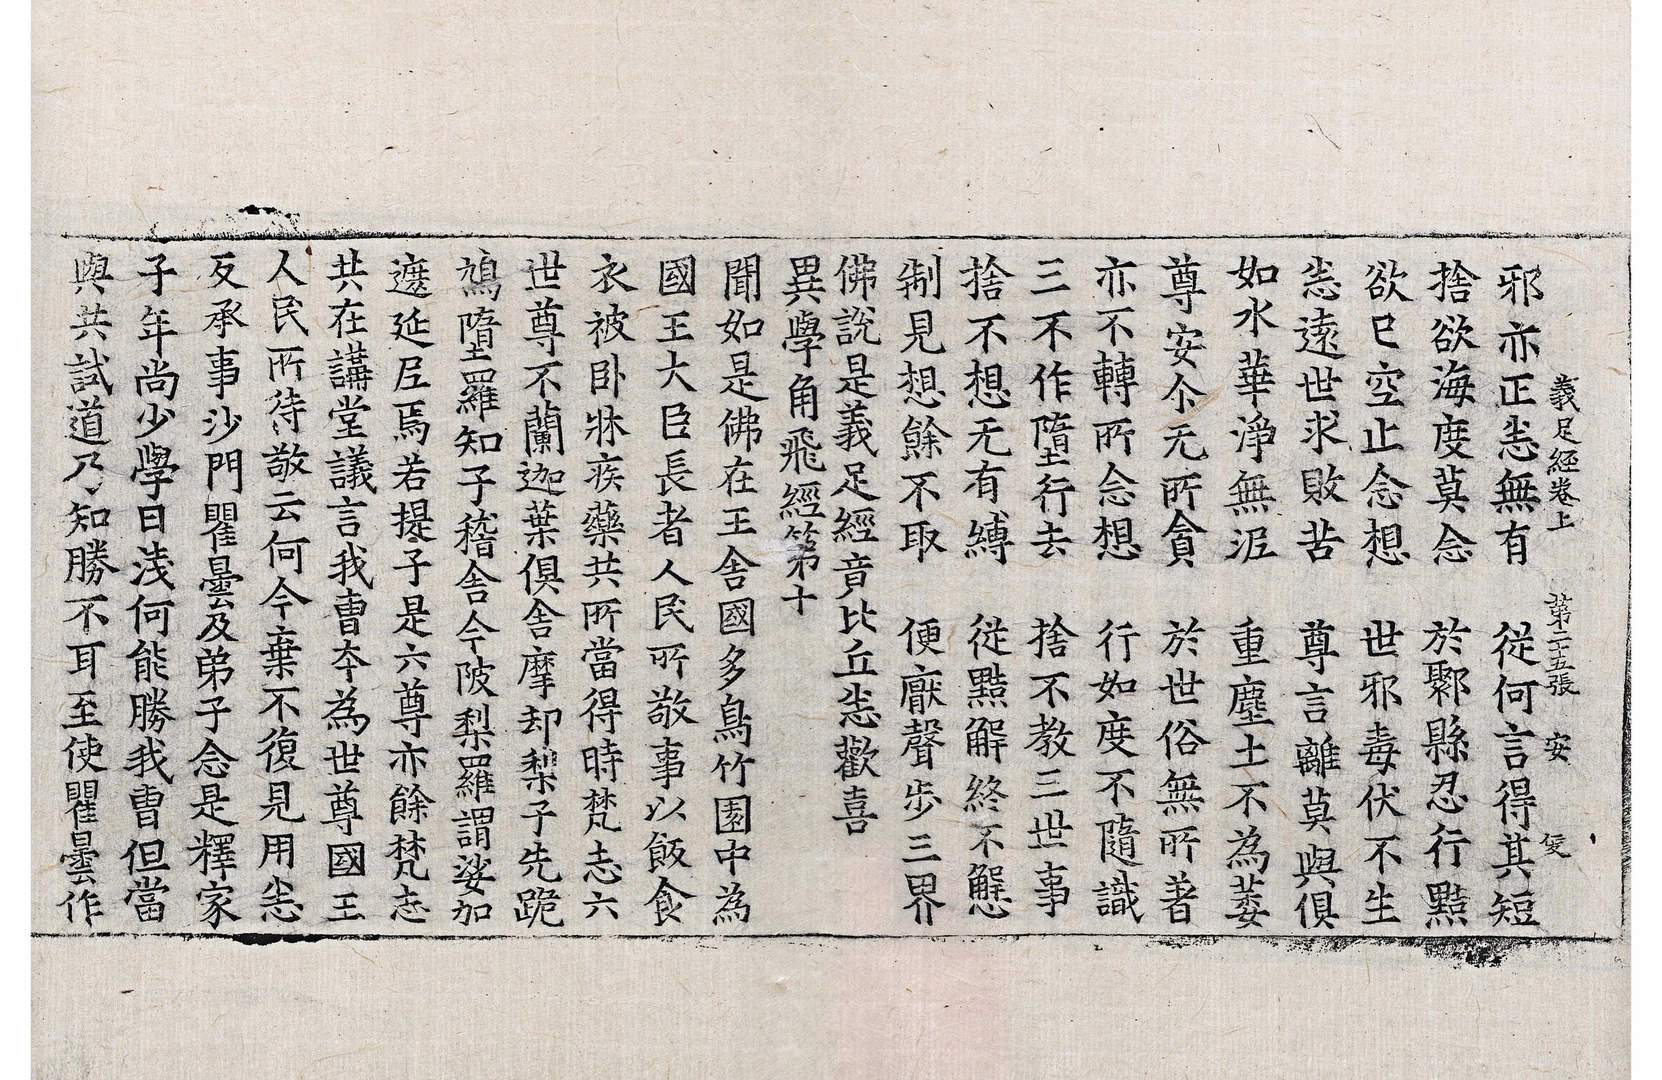 義足經卷上　第二十五張　安　㑺
邪亦正恚無有　從何言得其短
捨欲海度莫念　於㸦縣忍行黠
欲已空止念想　世邪毒伏不生
恚遠世求敗苦　尊言離莫與俱
如水華淨無泥　重塵土不為萎
尊安尒无所貪　於世俗無所著
亦不轉所念想　行如度不隨識
三不作墮行去　捨不教三世事
捨不想无有縛　從黠解終不懈
制見想餘不取　便廠聲步三界
佛說是義足經竟比丘恚歡喜
異學角飛經第十
聞如是佛在王舍國多鳥竹園中為
國王大臣長者人民所敬事以飯食
衣被卧牀疾藥共所當得時梵志六
世尊不蘭迦葉俱舍摩却梨子先跪
鳩墮羅知子稽舍今陂梨羅謂娑加
遮延尼焉若提子是六尊亦餘梵志
共在講堂議言我曹夲為世尊國王
人民所待敬云何今棄不復見用恚
反承事沙門瞿曇及弟子念是釋家
子年尚少學日淺何能勝我曹但當
與共試道乃知勝不耳至使瞿曇作